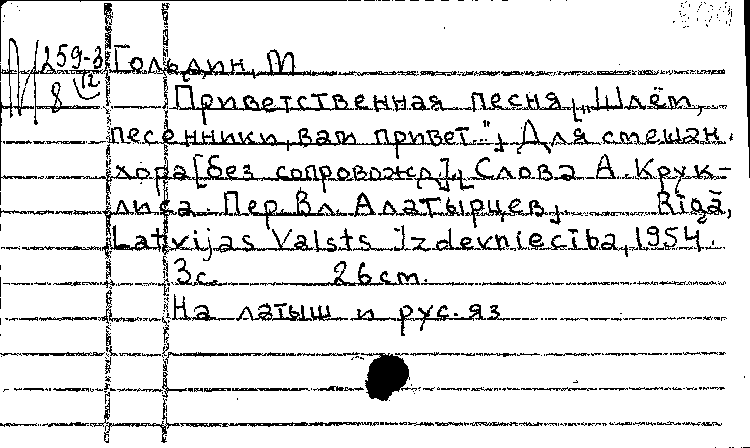 М 259-3 Гольдин, М
8 12
Приветственная песня [„Шлём,
песенники, вам привет..."]. Для смешан.
хора [без сопровожд.]. [Слова А. Крук-
лиса. Пер. Вл. Алатырцев]. Rīgā,
Latvijas Valsts Izdevniecība, 1954.
3 с. 26 cm.
На латыш и рус. яз